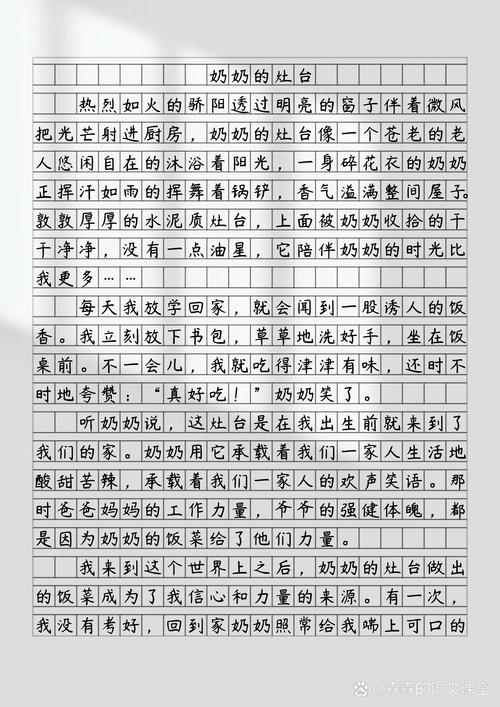 奶奶的灶台
热烈如火的骄阳透过明亮的窗子伴着微风
把光芒射进厨房，奶奶的灶台像一个苍老的老
人悠闲自在的沐浴着阳光，一身碎花衣的奶奶
正挥汗如雨的挥舞着锅铲，香气溢满整间屋子。
敦敦厚厚的水泥质灶台，上面被奶奶收拾的干
干净净，没有一点油星，它陪伴奶奶的时光比
我更多……
每天我放学回家，就会闻到一股诱人的饭
香。我立刻放下书包，草草地洗好手，坐在饭
桌前。不一会儿，我就吃得津津有味，还时不
时地夸赞：“真好吃！”奶奶笑了。
听奶奶说，这灶台是在我出生前就来到了
我们的家。奶奶用它承载着我们一家人生活地
酸甜苦辣，承载着我们一家人的欢声笑语。那
时爸爸妈妈的工作力量，爷爷的强健体魄，都
是因为奶奶的饭菜给了他们力量。
我来到这个世界上之后，奶奶的灶台做出
的饭菜成为了我信心和力量的来源。有一次，
我没有考好，回到家奶奶照常给我端上可口的
森森的语文课堂